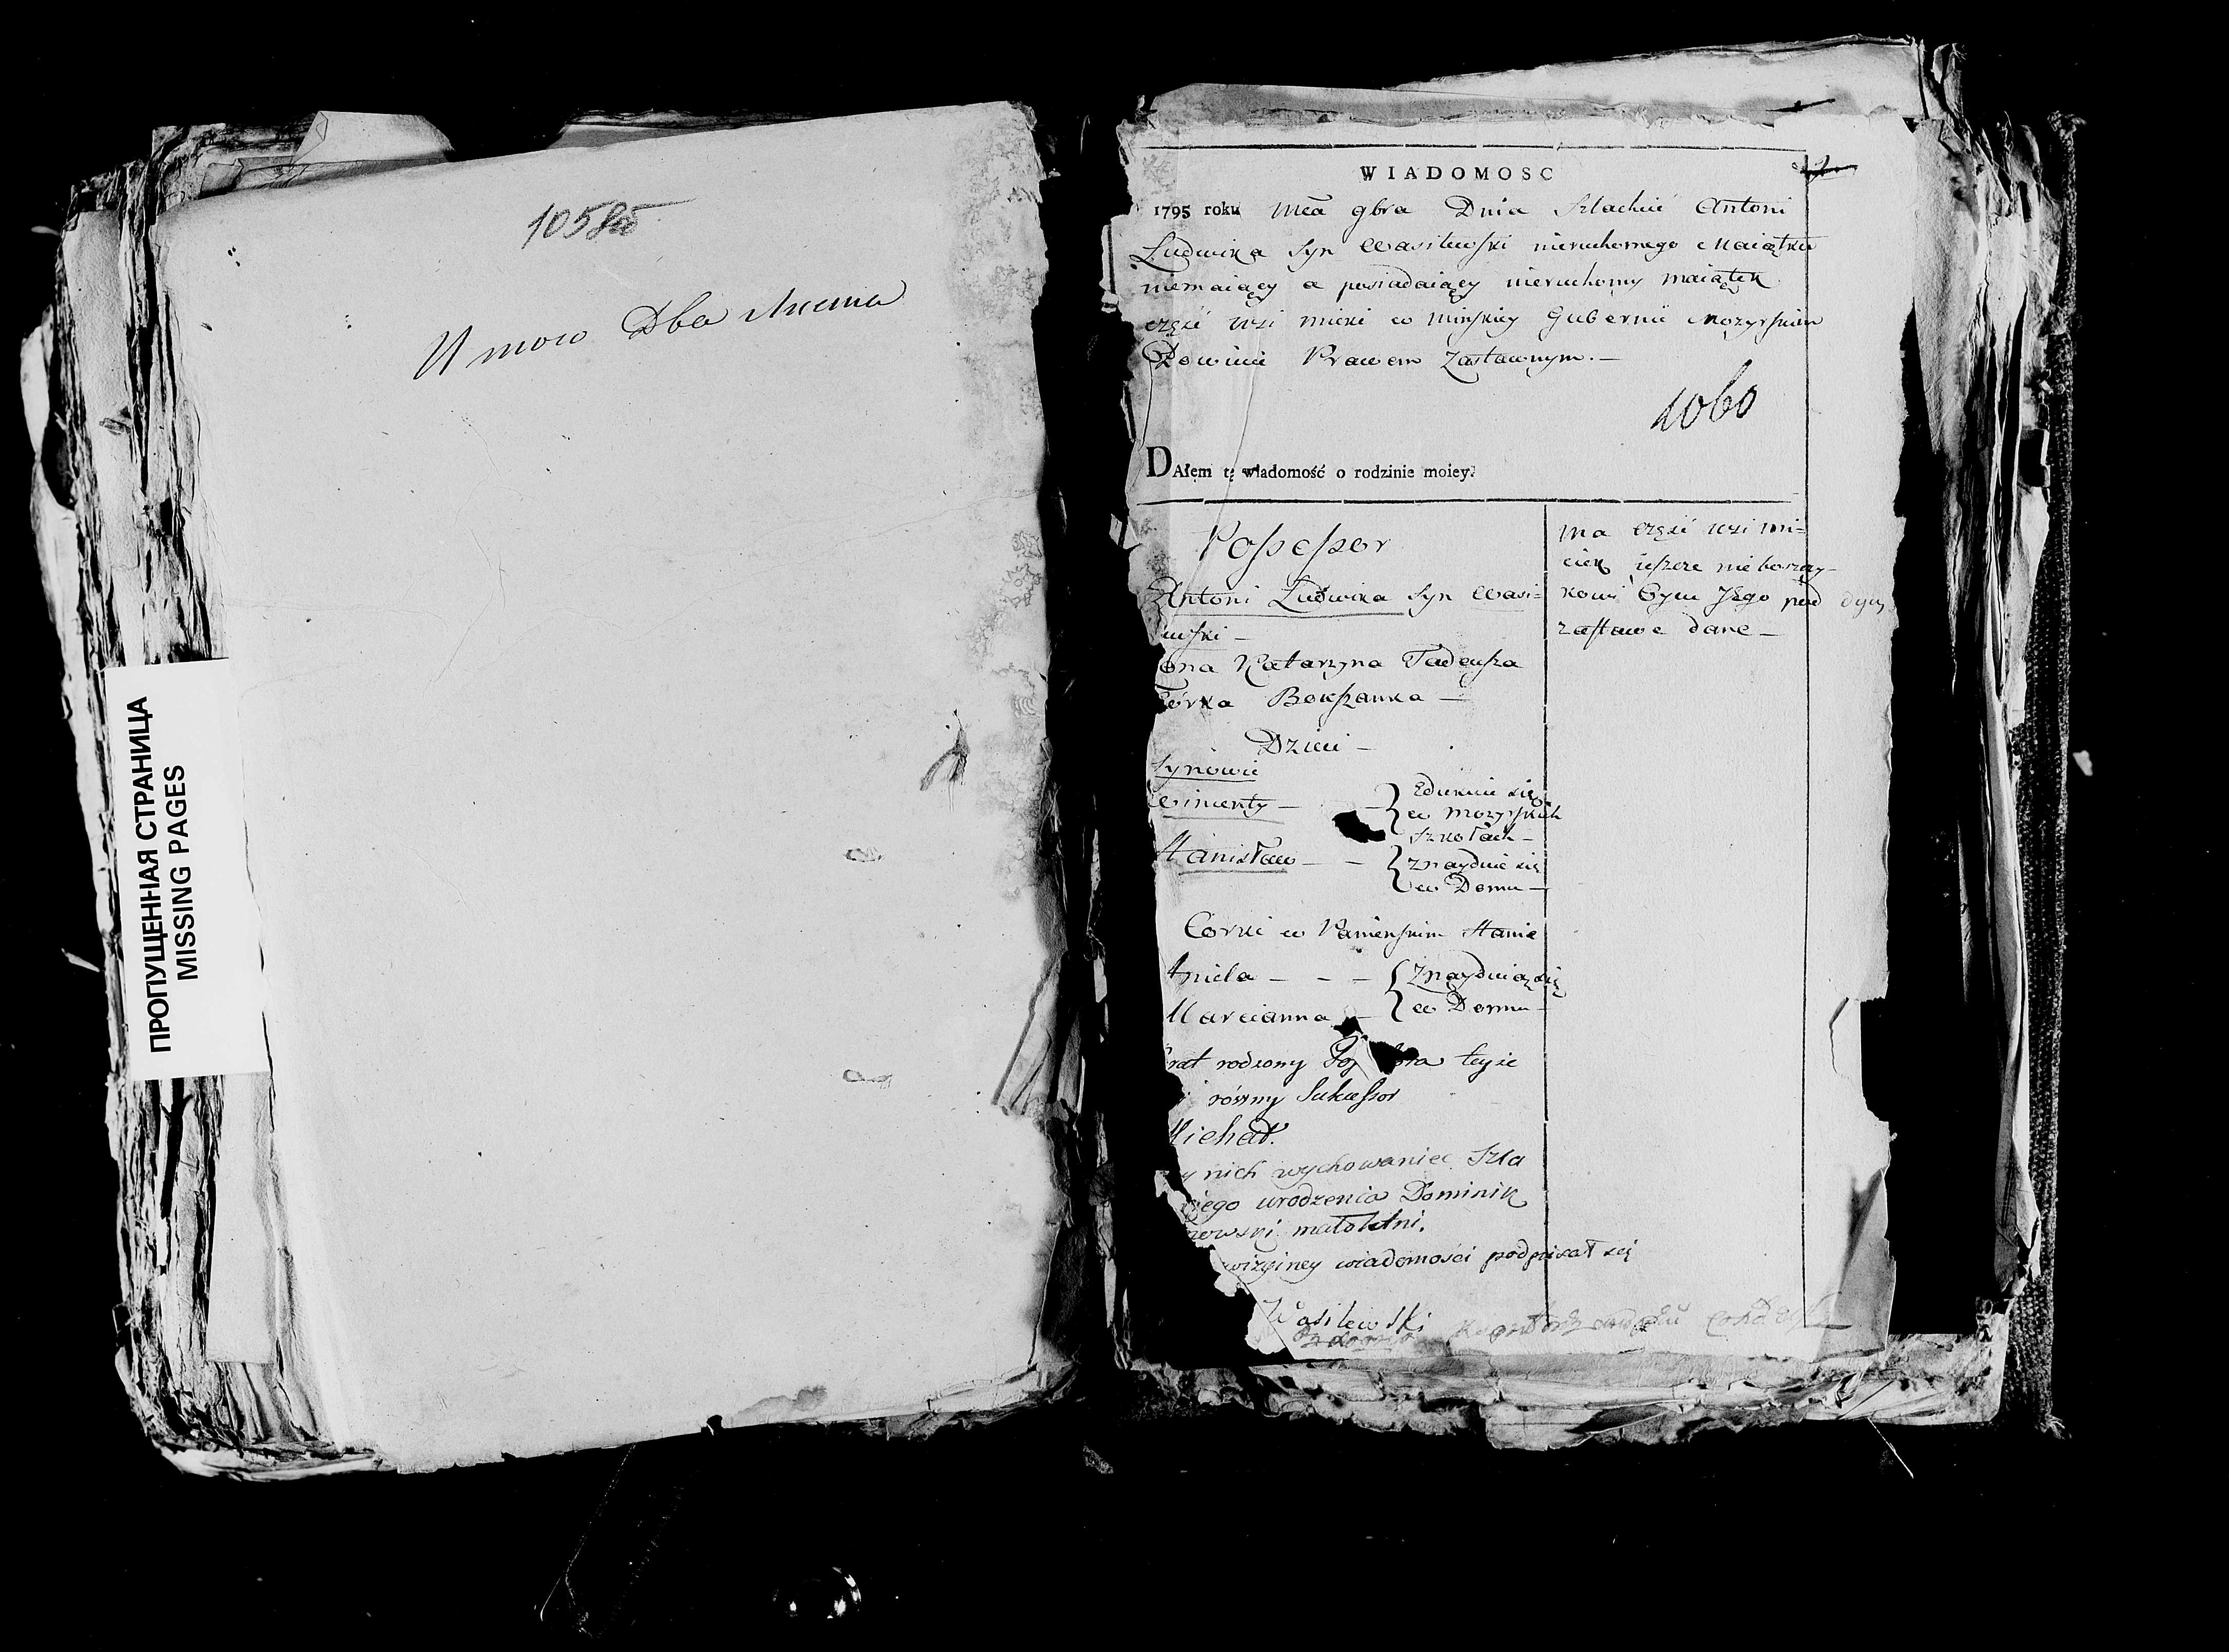 1058
Итого Два листа
ПРОПУЩЕННАЯ СТРАНИЦА
MISSING PAGES
WIADOMOSC
1795 roku Mca 9bra Dnia Szlachcic Antoni
Ludwika Syn Wasilewski nieruchomego Maiątku
niemaiący a posiadaiący nieruchomy maiątek
część wsi w Mińskiey Gubernii Mozyrskim
Powiecie Prawem Zastawnym.—
1060
DAłem tę wiadomość o rodzinie moiey.
Possessor
Antoni Ludwika Syn Wasi=
lewski —
ona Katarzyna Tadeusza
Córka Bokszanka —
Dzieci —
Synowie
Wincenty — Edukuie się
w Mozyrskich
Szkołach —
Stanisław — — Znayduie się
w Domu —
Córki w Panieńskim Stanie
Aniela — — — Znayduią się
Marcianna — w Domu —
Brat rodzony teyże
równy Sukcessor
Michał.
y nich wychowaniec Szla
iego urodzenia Dominik
owski małoletni.
wiadomości podpisał się
Wasilewski
Ma część wsi Mi=
ciek ieszcze nieboszczy-
kowi Oycu Jego pod
zastawę dane —